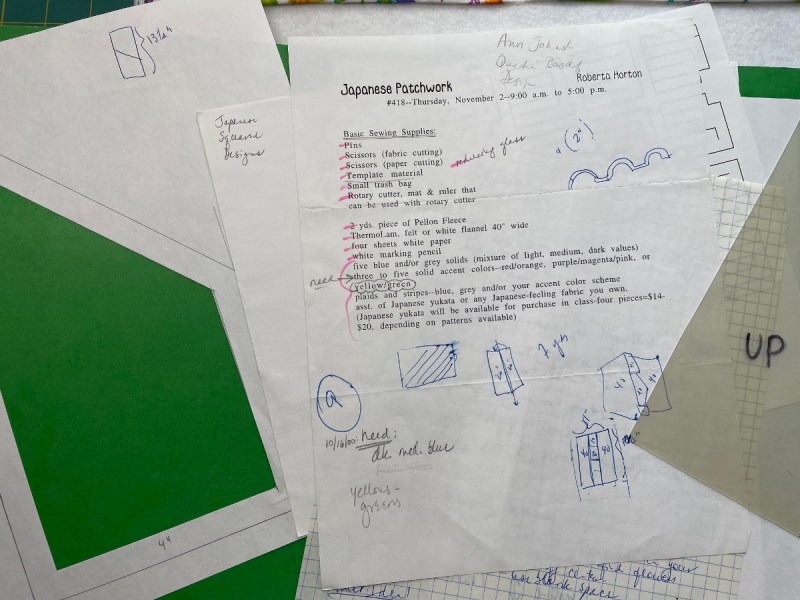 13 1/2"
Japanese
Square
Designs
Ann
Japanese Patchwork
Roberta Horton
#418--Thursday, November 2--9:00 a.m. to 5:00 p.m.
Basic Sewing Supplies:
Pins
Scissors (fabric cutting)
Scissors (paper cutting)
reducing glass
Template material
Small trash bag
Rotary cutter, mat & ruler that
can be used with rotary cutter
2"
2 yds. piece of Pellon Fleece
ThermoLam, felt or white flannel 40" wide
four sheets white paper
white marking pencil
five blue and/or grey solids (mixture of light, medium, dark values)
need
three to five solid accent colors--red/orange, purple/magenta/pink, or
yellow/green
plaids and stripes--blue, grey and/or your accent color scheme
asst. of Japanese yukata or any Japanese-feeling fabric you own.
(Japanese yukata will be available for purchase in class-four pieces=$14-
$20, depending on patterns available)
7 yds
UP
a
10/16/00: need:
dk. med. blue
yellow-
greens
4"
your
flower
space